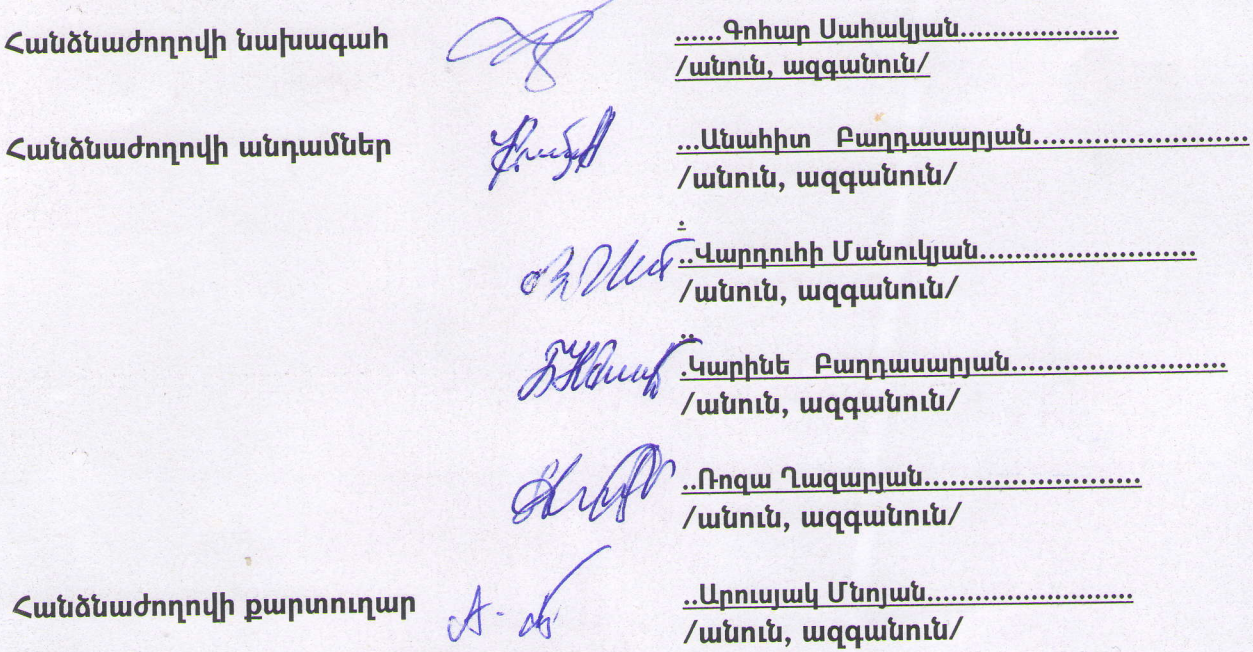 Հանձնաժողովի նախագահ ......Գոհար Սահակյան....................
/անուն, ազգանուն/
Հանձնաժողովի անդամներ ...Անահիտ Բաղդասարյան.......................
/անուն, ազգանուն/
.
..Վարդուհի Մանուկյան.......................
/անուն, ազգանուն/
..
.Կարինե Բաղդասարյան.......................
/անուն, ազգանուն/
..Ռոզա Ղազարյան.......................
/անուն, ազգանուն/
Հանձնաժողովի քարտուղար ..Արուսյակ Մնոյան......................
/անուն, ազգանուն/